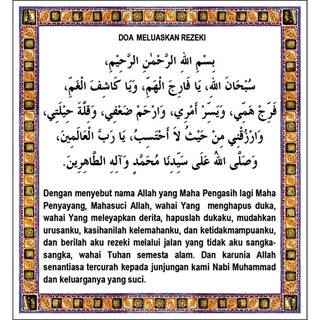 DOA MELUASKAN REZEKI
بِسْمِ اللهِ الرَّحْمٰنِ الرَّحِيْمِ،
سُبْحَانَ اللهِ، يَا فَارِجَ الْهَمِّ، وَيَا كَاشِفَ الْغَمِّ،
فَرِّجْ هَمِّي، وَيَسِّرْ أَمْرِي، وَارْحَمْ ضَعْفِي، وَقِلَّةَ حِيْلَتِي،
وَارْزُقْنِي مِنْ حَيْثُ لاَ أَحْتَسِبُ، يَا رَبَّ الْعَالَمِيْنَ،
وَصَلَّى اللهُ عَلَى سَيِّدِنَا مُحَمَّدٍ وَآلِهِ الطَّاهِرِيْنَ.
Dengan menyebut nama Allah yang Maha Pengasih lagi Maha
Penyayang, Mahasuci Allah, wahai Yang menghapus duka,
wahai Yang meleyapkan derita, hapuslah dukaku, mudahkan
urusanku, kasihanilah kelemahanku, dan ketidakmampuanku,
dan berilah aku rezeki melalui jalan yang tidak aku sangka-
sangka, wahai Tuhan semesta alam. Dan karunia Allah
senantiasa tercurah kepada junjungan kami Nabi Muhammad
dan keluarganya yang suci.